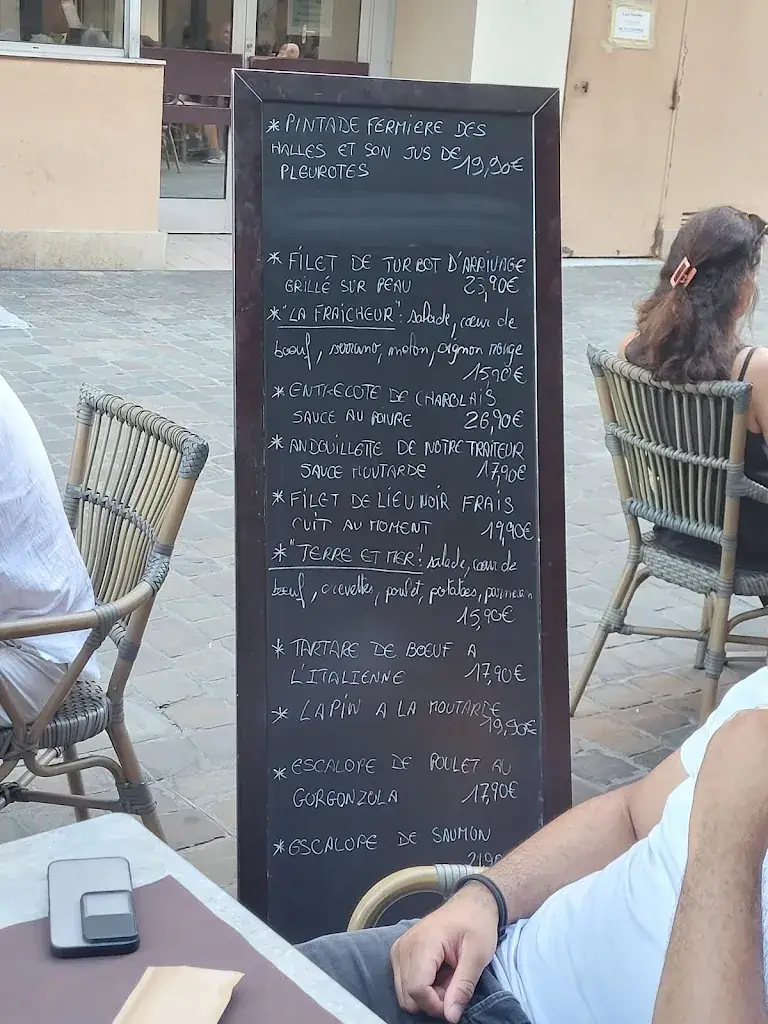 * PINTADE FERMIERE DES
HALLES ET SON JUS DE
PLEUROTES 19,90€
* FILET DE TURBOT D'ARRIVAGE
GRILLÉ SUR PEAU 23,90€
* "LA FRAICHEUR": salade, cœur de
bœuf, serrano, melon, oignon rouge
15,90€
* ENTRECOTE DE CHAROLAIS
SAUCE AU POIVRE 26,90€
* ANDOUILLETTE DE NOTRE TRAITEUR
SAUCE MOUTARDE 17,90€
* FILET DE LIEU NOIR FRAIS
CUIT AU MOMENT 19,90€
* "TERRE ET MER": salade, cœur de
bœuf, crevettes, poulet, potatoes, parmesan
15,90€
* TARTARE DE BOEUF A
L'ITALIENNE 17,90€
* LAPIN A LA MOUTARDE
19,90€
* ESCALOPE DE POULET AU
GORGONZOLA 17,90€
* ESCALOPE DE SAUMON
21,90